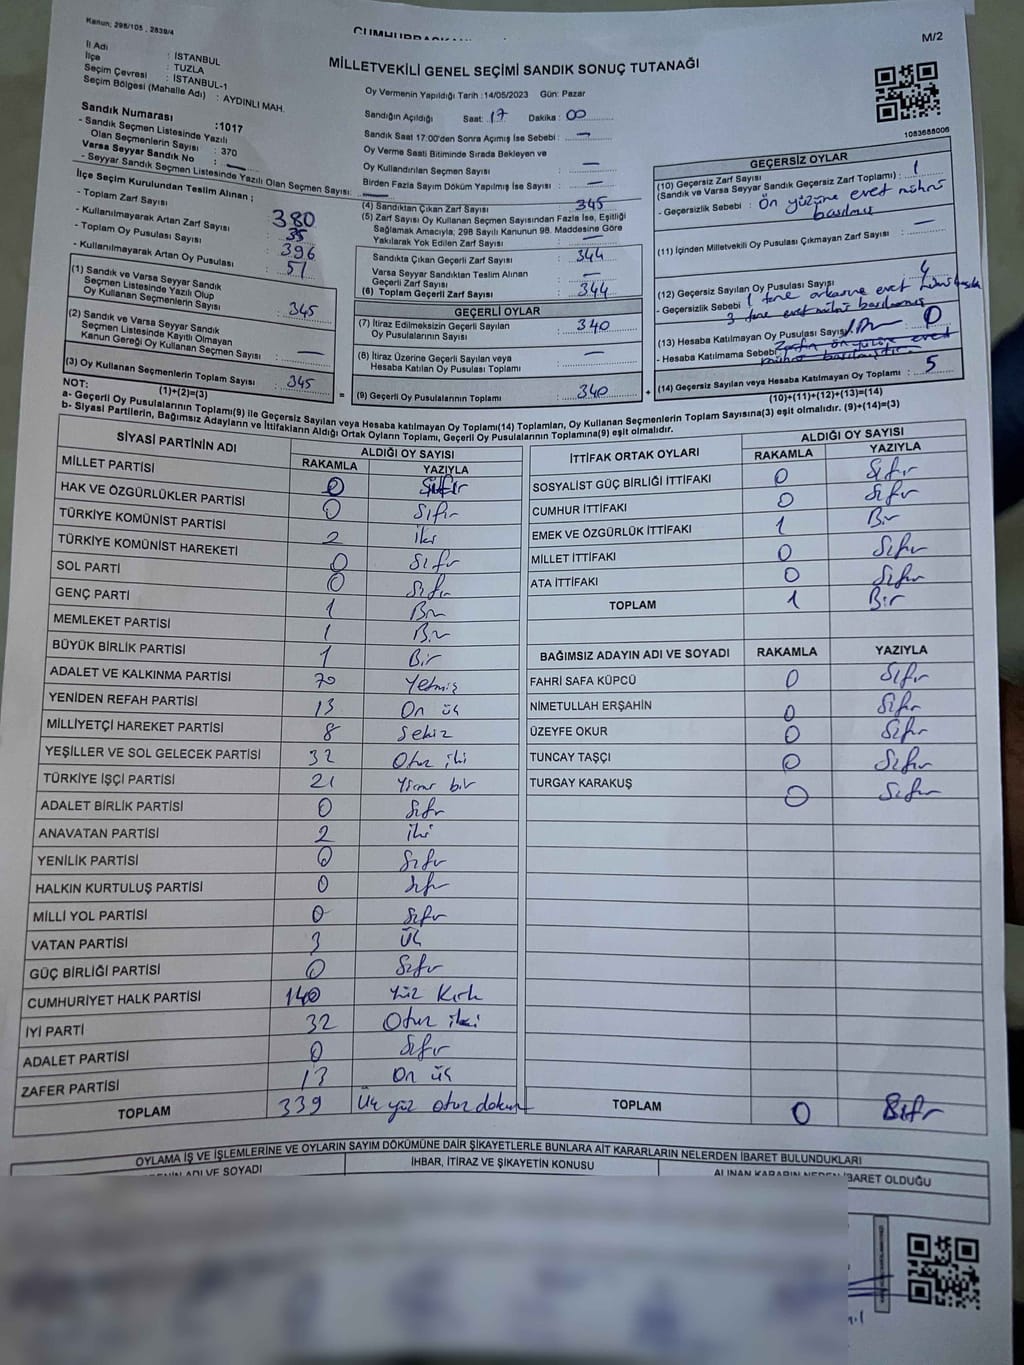 Kanun: 298/105 , 2839/4
M/2
MİLLETVEKİLİ GENEL SEÇİMİ SANDIK SONUÇ TUTANAĞI
İl Adı : İSTANBUL
İlçe : TUZLA
Seçim Çevresi : İSTANBUL-1
Seçim Bölgesi (Mahalle Adı) : AYDINLI MAH.
Sandık Numarası :1017
- Sandık Seçmen Listesinde Yazılı
Olan Seçmenlerin Sayısı : 370
Varsa Seyyar Sandık No : —
- Seyyar Sandık Seçmen Listesinde Yazılı Olan Seçmen Sayısı: —
İlçe Seçim Kurulundan Teslim Alınan ;
- Toplam Zarf Sayısı : 380
- Kullanılmayarak Artan Zarf Sayısı : 35
- Toplam Oy Pusulası Sayısı : 396
- Kullanılmayarak Artan Oy Pusulası : 51
(1) Sandık ve Varsa Seyyar Sandık
Seçmen Listesinde Yazılı Olup
Oy Kullanan Seçmenlerin Sayısı : 345
(2) Sandık ve Varsa Seyyar Sandık
Seçmen Listesinde Kayıtlı Olmayan
Kanun Gereği Oy Kullanan Seçmen Sayısı : —
(3) Oy Kullanan Seçmenlerin Toplam Sayısı : 345
(1)+(2)=(3)
Oy Vermenin Yapıldığı Tarih :14/05/2023 Gün: Pazar
Sandığın Açıldığı Saat: 17 Dakika : 00
Sandık Saat 17:00'den Sonra Açılmış İse Sebebi : —
Oy Verme Saati Bitiminde Sırada Bekleyen ve
Oy Kullandırılan Seçmen Sayısı : —
Birden Fazla Sayım Döküm Yapılmış İse Sayısı : —
(4) Sandıktan Çıkan Zarf Sayısı : 345
(5) Zarf Sayısı Oy Kullanan Seçmen Sayısından Fazla İse, Eşitliği
Sağlamak Amacıyla, 298 Sayılı Kanunun 98. Maddesine Göre
Yakılarak Yok Edilen Zarf Sayısı : —
Sandıkta Çıkan Geçerli Zarf Sayısı : 344
Varsa Seyyar Sandıktan Teslim Alınan
Geçerli Zarf Sayısı : —
(6) Toplam Geçerli Zarf Sayısı : 344
GEÇERLİ OYLAR
(7) İtiraz Edilmeksizin Geçerli Sayılan
Oy Pusulalarının Sayısı : 340
(8) İtiraz Üzerine Geçerli Sayılan veya
Hesaba Katılan Oy Pusulası Toplamı : —
(9) Geçerli Oy Pusulalarının Toplamı : 340
1083688006
GEÇERSİZ OYLAR
(10) Geçersiz Zarf Sayısı
(Sandık ve Varsa Seyyar Sandık Geçersiz Zarf Toplamı) : 1
- Geçersizlik Sebebi : Ön yüzüne evet mührü
basılmış
(11) İçinden Milletvekili Oy Pusulası Çıkmayan Zarf Sayısı : —
(12) Geçersiz Sayılan Oy Pusulası Sayısı : 4
- Geçersizlik Sebebi : 1 tane arkasına evet
3 tane evet mührü basılmamış
(13) Hesaba Katılmayan Oy Pusulası Sayısı : 0
- Hesaba Katılmama Sebebi : Zarfın ön yüzüne evet
mührü basılmıştır.
(14) Geçersiz Sayılan veya Hesaba Katılmayan Oy Toplamı : 5
(10)+(11)+(12)+(13)=(14)
NOT:
a- Geçerli Oy Pusulalarının Toplamı(9) ile Geçersiz Sayılan veya Hesaba katılmayan Oy Toplamı(14) Toplamları, Oy Kullanan Seçmenlerin Toplam Sayısına(3) eşit olmalıdır. (9)+(14)=(3)
b- Siyasi Partilerin, Bağımsız Adayların ve İttifakların Aldığı Ortak Oyların Toplamı, Geçerli Oy Pusulalarının Toplamına(9) eşit olmalıdır.
SİYASİ PARTİNİN ADI ALDIĞI OY SAYISI
RAKAMLA YAZIYLA
MİLLET PARTİSİ 0 Sıfır
HAK VE ÖZGÜRLÜKLER PARTİSİ 0 Sıfır
TÜRKİYE KOMÜNİST PARTİSİ 2 iki
TÜRKİYE KOMÜNİST HAREKETİ 0 Sıfır
SOL PARTİ 0 Sıfır
GENÇ PARTİ 1 Bir
MEMLEKET PARTİSİ 1 Bir
BÜYÜK BİRLİK PARTİSİ 1 Bir
ADALET VE KALKINMA PARTİSİ 70 Yetmiş
YENİDEN REFAH PARTİSİ 13 On üç
MİLLİYETÇİ HAREKET PARTİSİ 8 Sekiz
YEŞİLLER VE SOL GELECEK PARTİSİ 32 Otuz iki
TÜRKİYE İŞÇİ PARTİSİ 21 Yirmi bir
ADALET BİRLİK PARTİSİ 0 Sıfır
ANAVATAN PARTİSİ 2 iki
YENİLİK PARTİSİ 0 Sıfır
HALKIN KURTULUŞ PARTİSİ 0 Sıfır
MİLLİ YOL PARTİSİ 0 Sıfır
VATAN PARTİSİ 3 Üç
GÜÇ BİRLİĞİ PARTİSİ 0 Sıfır
CUMHURİYET HALK PARTİSİ 140 Yüz Kırk
İYİ PARTİ 32 Otuz iki
ADALET PARTİSİ 0 Sıfır
ZAFER PARTİSİ 13 On üç
TOPLAM 339 Üç yüz otuz dokuz
İTTİFAK ORTAK OYLARI ALDIĞI OY SAYISI
RAKAMLA YAZIYLA
SOSYALİST GÜÇ BİRLİĞİ İTTİFAKI 0 Sıfır
CUMHUR İTTİFAKI 0 Sıfır
EMEK VE ÖZGÜRLÜK İTTİFAKI 1 Bir
MİLLET İTTİFAKI 0 Sıfır
ATA İTTİFAKI 0 Sıfır
TOPLAM 1 Bir
BAĞIMSIZ ADAYIN ADI VE SOYADI RAKAMLA YAZIYLA
FAHRİ SAFA KÜPCÜ 0 Sıfır
NİMETULLAH ERŞAHİN 0 Sıfır
ÜZEYFE OKUR 0 Sıfır
TUNCAY TAŞÇI 0 Sıfır
TURGAY KARAKUŞ 0 Sıfır
TOPLAM 0 Sıfır
OYLAMA İŞ VE İŞLEMLERİNE VE OYLARIN SAYIM DÖKÜMÜNE DAİR ŞİKAYETLERLE BUNLARA AİT KARARLARIN NELERDEN İBARET BULUNDUKLARI
ADI VE SOYADI İHBAR, İTİRAZ VE ŞİKAYETİN KONUSU ALINAN KARARIN NEDEN İBARET OLDUĞU